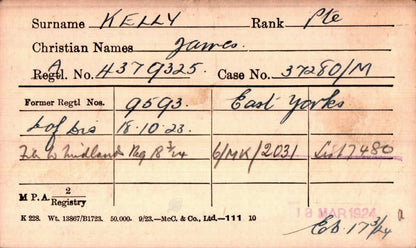 Surname KELLY Rank Pte
Christian Names James.
Regtl. No. 4379325. Case No. 37280/M
Former Regtl Nos. 9593. East Yorks
D of Dis 18.10.23.
Midland Reg 18 3/24 6/MK/2031 17480
M P A 2/Registry
K 228. Wt. 13867/B1723. 50,000. 9/23.—McC. & Co., Ltd.—111 10
18 MAR 1924
17 3/24